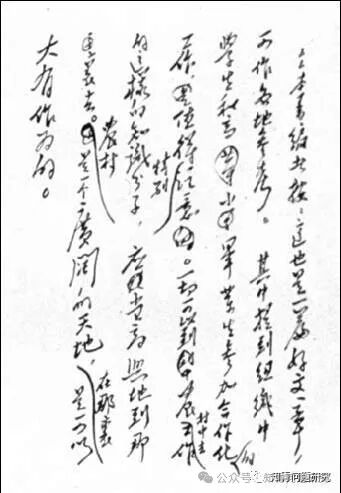 本书编者按:这也是一篇好文章,
可作各地参考。其中提到组织中
学生和高小毕业生参加合作化的
工作,值得特别注意。一切可以到农村中去工作
的这样的知识分子,应当高兴地到那
里去。农村是一个广阔的天地,在那里是可以
大有作为的。
公众号 知青问题研究